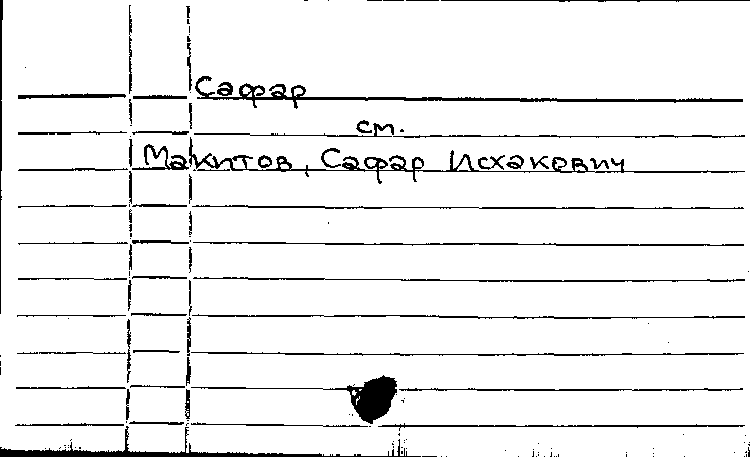 Сафар
см.
Макитов, Сафар Исхакович